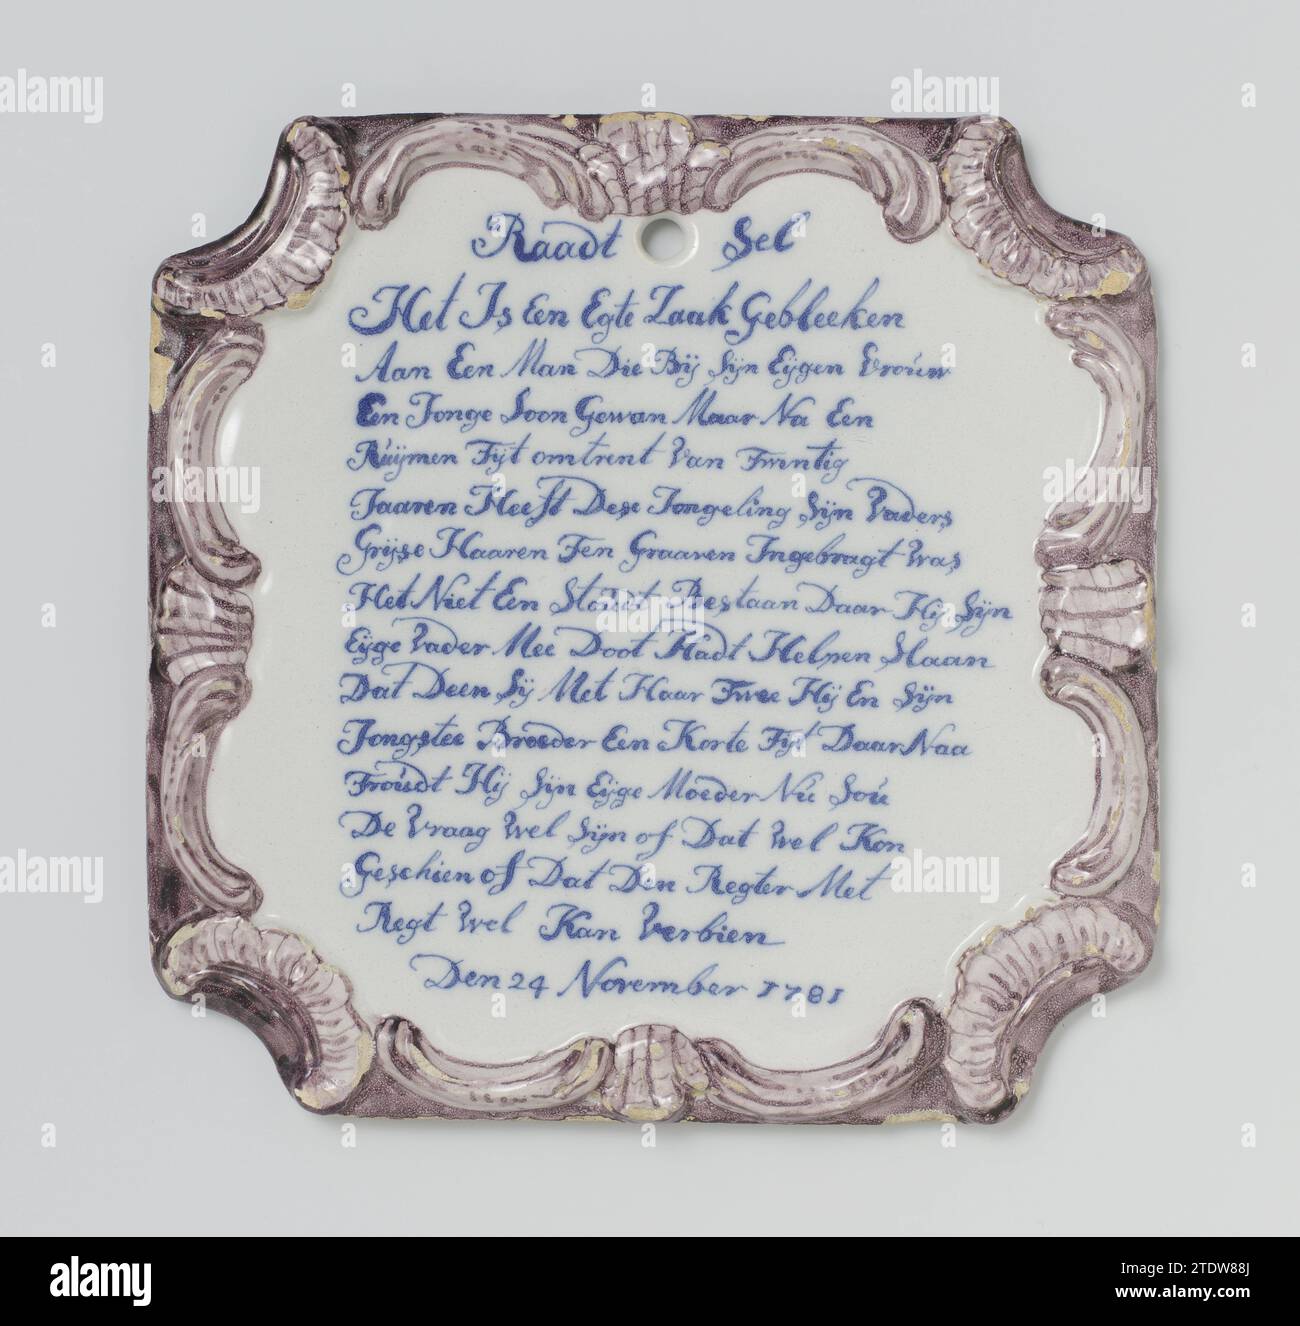 Raadt Sel
Het Is Een Egte Zaak Gebleeken
Aan Een Man Die Bij Sijn Eijgen Vrouw
Een Jonge Soon Gewan Maar Na Een
Ruijmen Tijt omtrent Van Twintig
Jaaren Heeft Dese Jongeling Sijn Vaders
Grijse Haaren Ten Graaven Ingebragt Was
Het Niet Een Stoudt Bestaan Daar Hij Sijn
Eijge Vader Mee Doot Hadt Helpen Slaan
Dat Deen Sij Met Haar Twee Hij En Sijn
Jongstee Broeder Een Korte Tijt Daar Naa
Troudt Hij Sijn Eijge Moeder Nu Sou
De Vraag Wel Sijn of Dat Wel Kon
Geschien of Dat Den Regter Met
Regt Wel Kan Verbien
Den 24 November 1781
alamy
Image ID: 2TDW88J
www.alamy.com